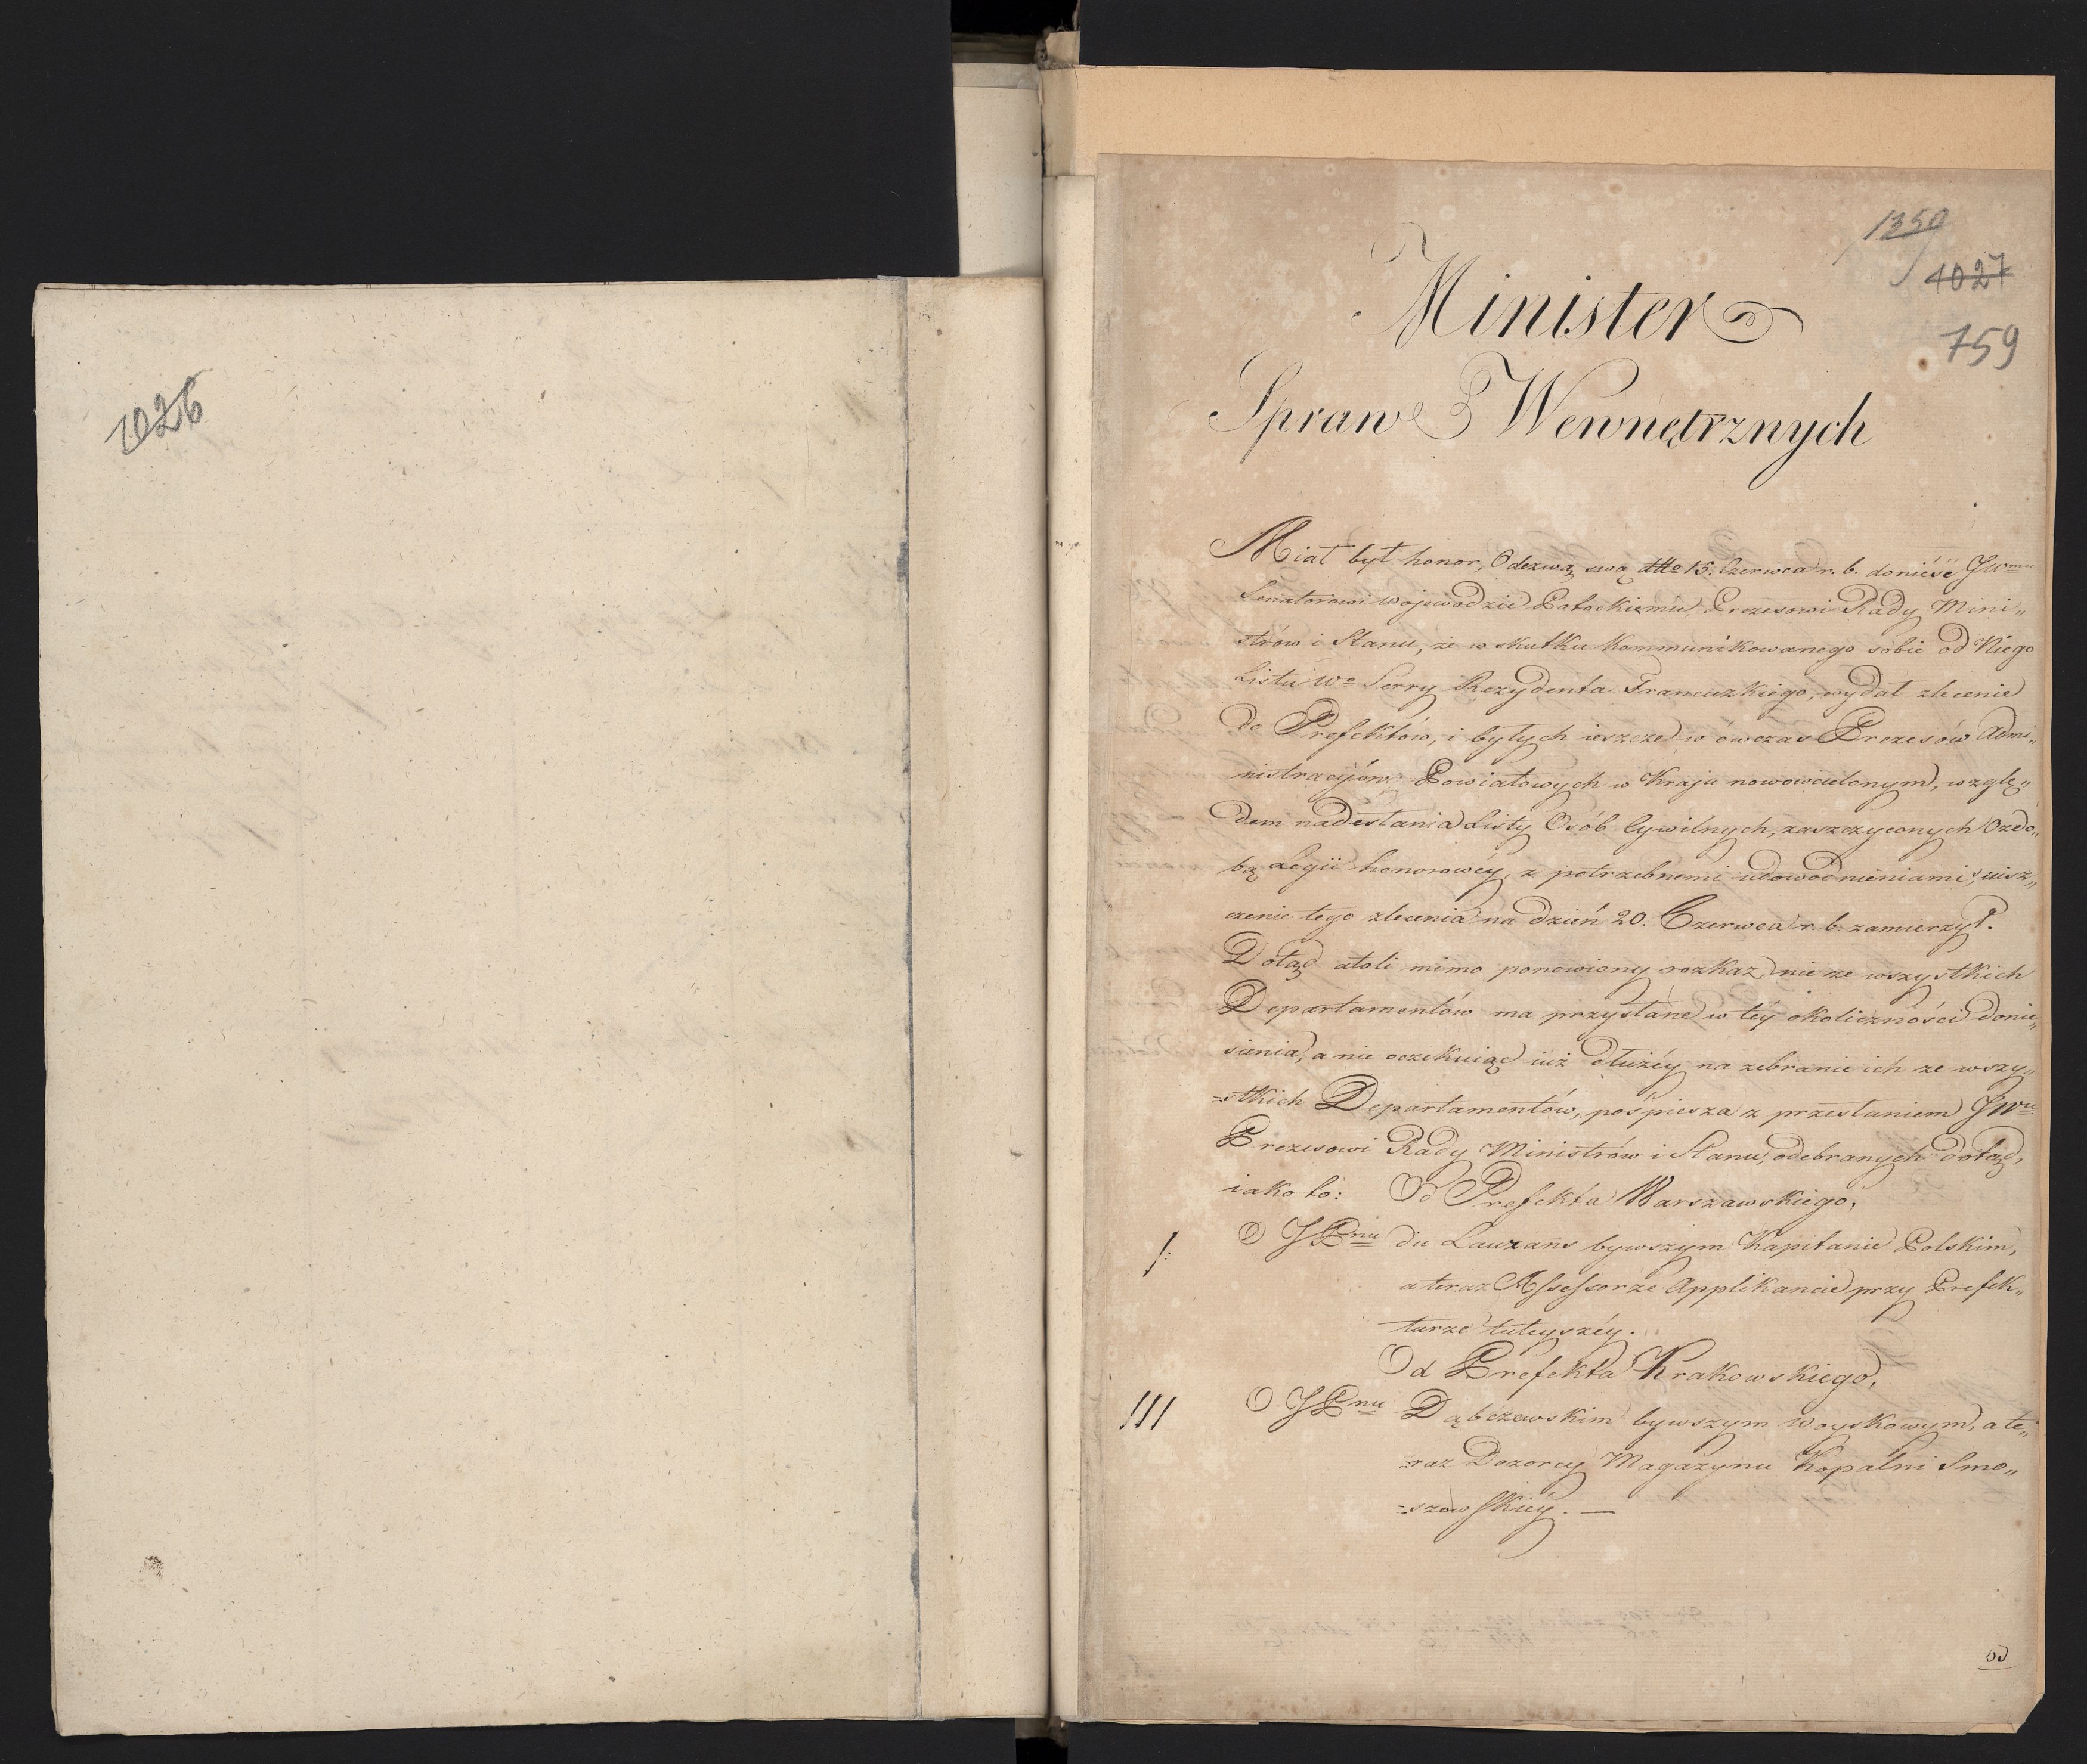 1026
1350
4027
759
Minister
Spraw Wewnętrznych
Miał był honor, Odezwą swą dtto 15. Czerwca r. b. donieśc JWmu
Senatorowi Wojewodzie Potockiemu, Prezesowi Rady Mini„
strów i Stanu, że w skutku kommunikowanego sobie od Niego
Listu Wo Serry Rezydenta Francuzkiego, wydał zlecenie
do Prefektów, i byłych ieszcze w ówczas Prezesów Admi„
nistracyiów Powiatowych w Kraju nowowcielonym, wzglę„
dem nadesłania Listy Osób Cywilnych, zaszczyconych Ozdo„
bą Legii honorowéy, z potrzebnemi udowodnieniami; uisz„
czenie tego zlecenia na dzień 20. Czerwca r. b. zamierzył.
Dotąd atoli mimo ponowiony rozkaz, nie ze wszystkich
Departamentów ma przysłane w téy okoliczności donie„
sienia, a nie oczekuiąc iuż dłużéy na zebranie ich ze wszy„
=stkich Departamentów, pośpiesza z przesłaniem JWu
Prezesowi Rady Ministrów i Stanu, odebranych dotąd,
iako to: Od Prefekta Warszawskiego,
I. O JPnu du Lauzans bywszym Kapitanie Polskim,
a teraz Assessorze Applikancie przy Prefek„
turze tuteyszéy.
Od Prefekta Krakowskiego,
III O JPnu Dąbczewskim bywszym woyskowym, a te„
=raz Dozorcy Magazynu Kopalni Smo„
=szowskiéy. —
Od